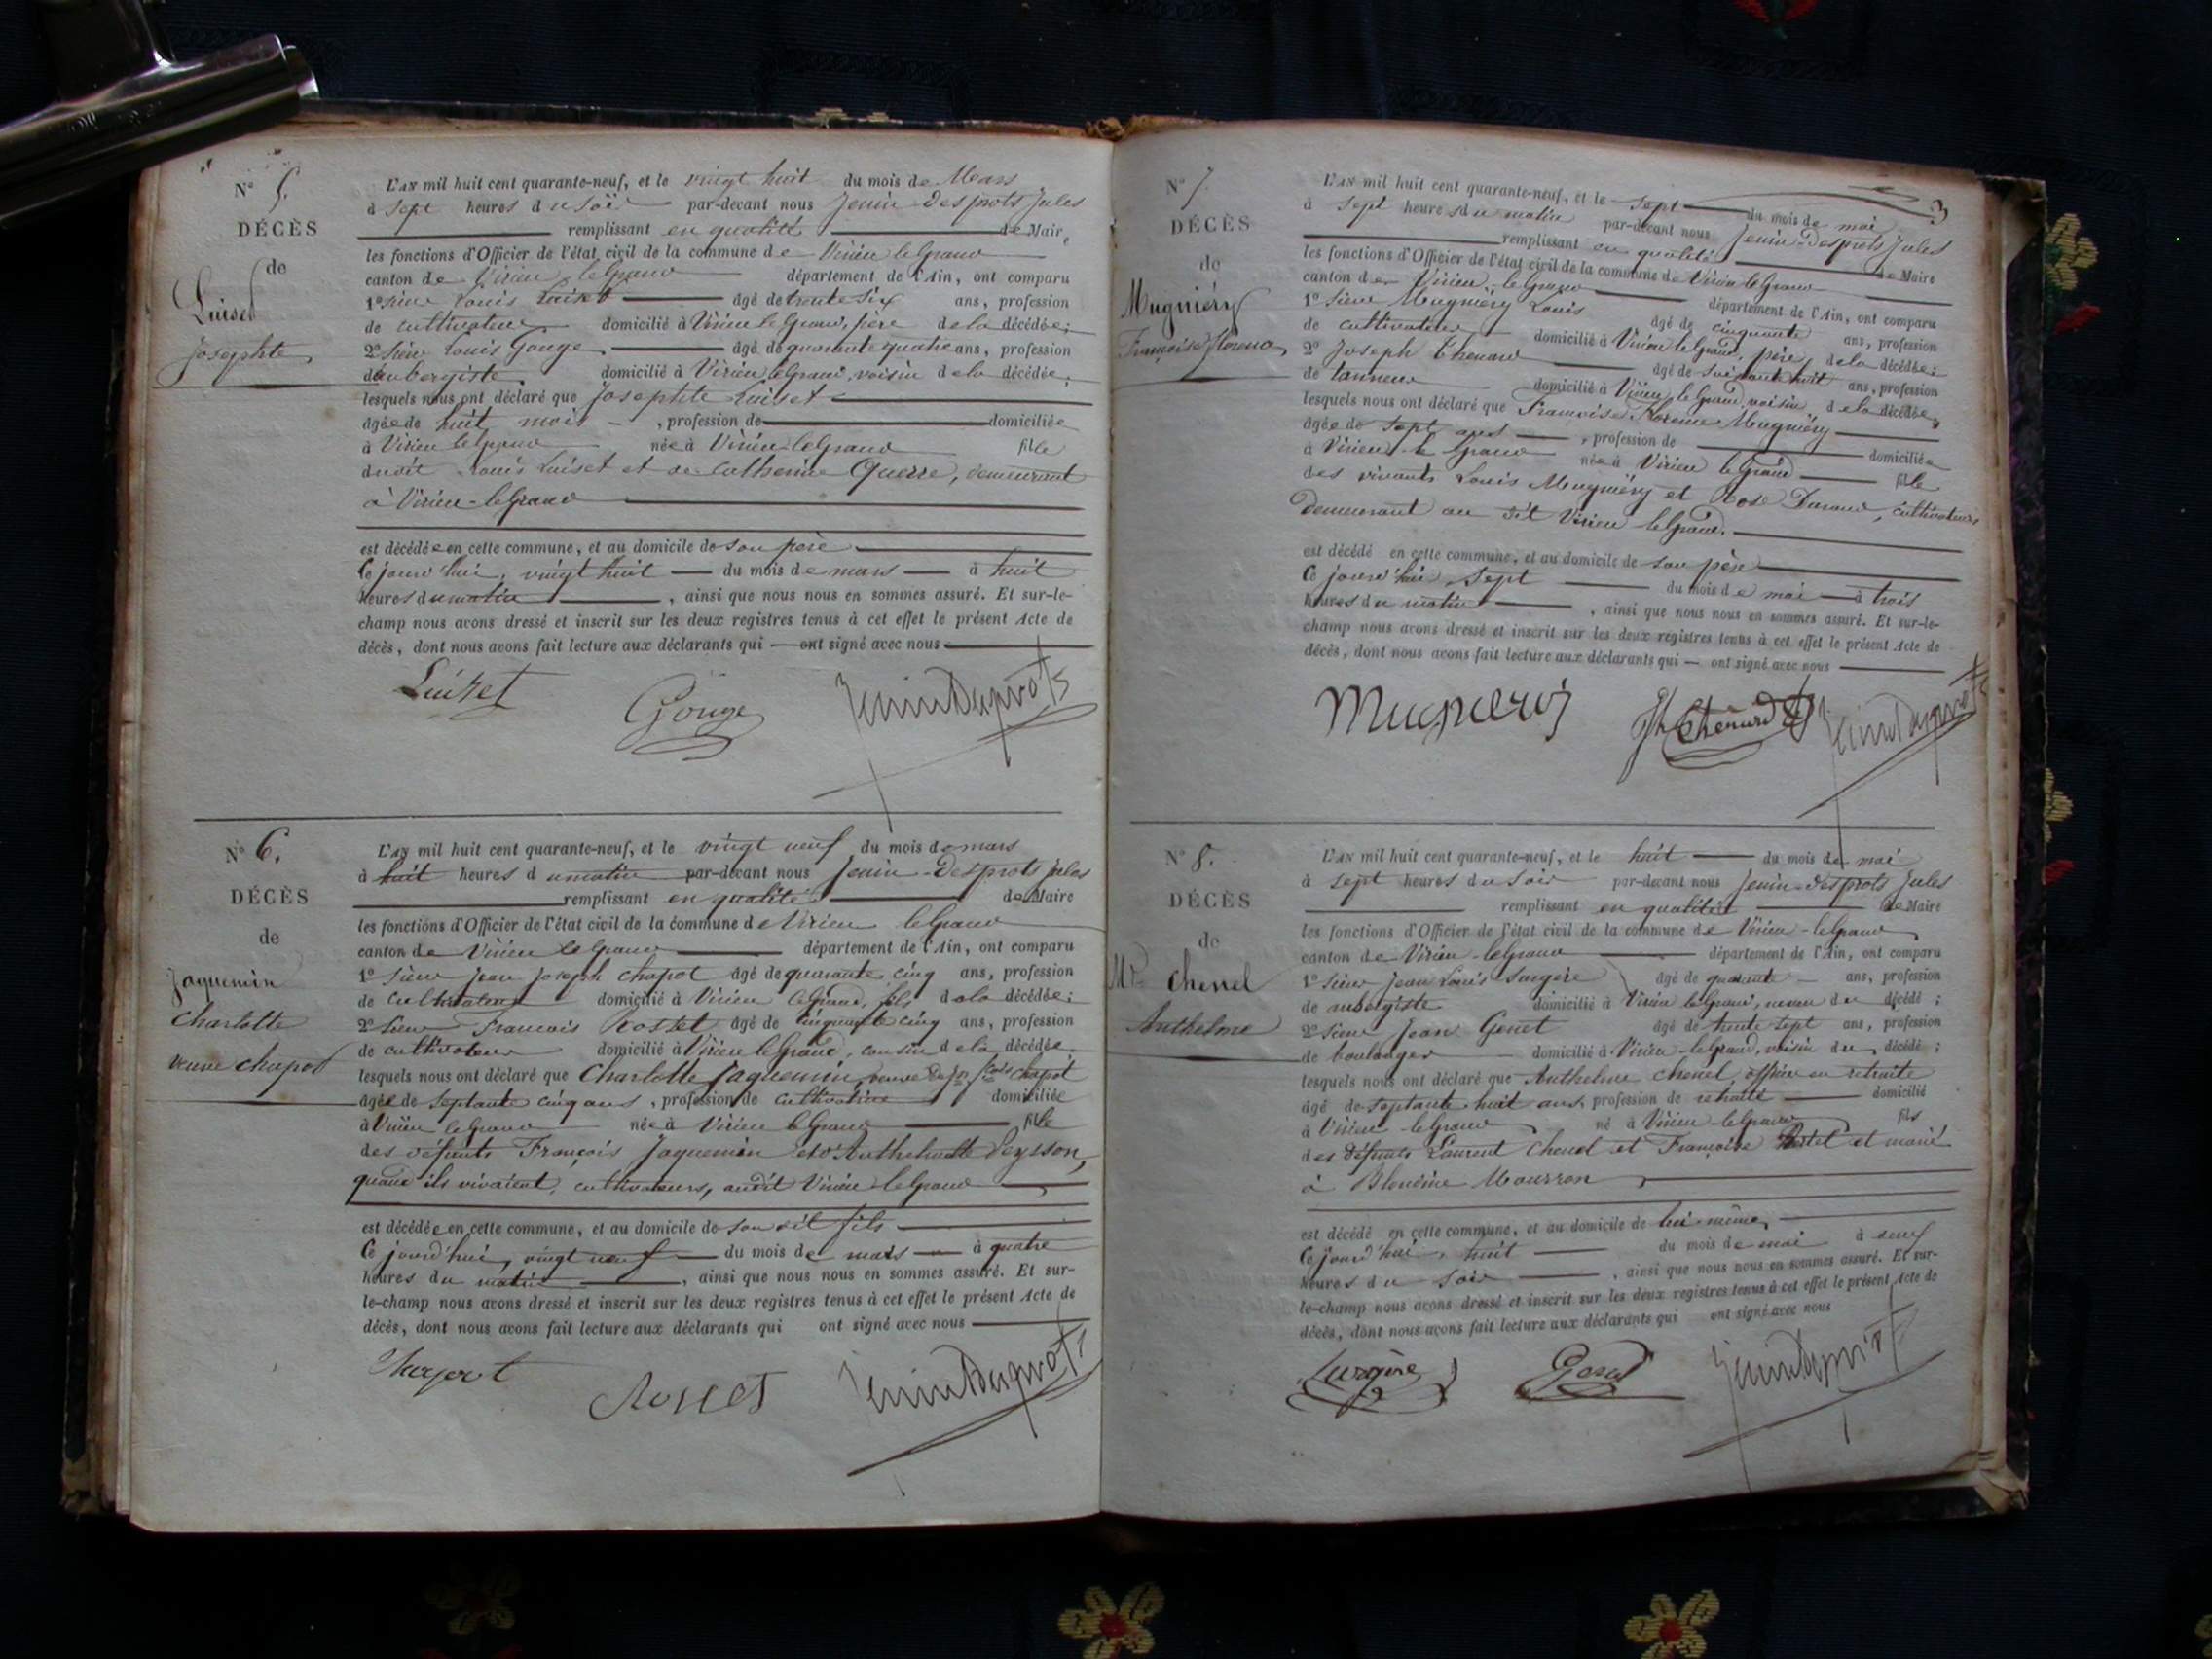 N° 5.
DÉCÈS
de
Luiset
Josephte
L'AN mil huit cent quarante-neuf, et le vingt huit du mois de Mars
à sept heures du soir par-devant nous Jenin-Desprots Jules
remplissant en qualité de Maire
les fonctions d'Officier de l'état civil de la commune de Virieu le Grand
canton de Virieu-le Grand département de l'Ain, ont comparu
1° sieur Louis Luiset âgé de trente six ans, profession
de cultivateur domicilié à Virieu le Grand, père de la décédée;
2° sieur Louis Gouge âgé de quarante quatre ans, profession
d'aubergiste domicilié à Virieu le Grand, voisin de la décédée;
lesquels nous ont déclaré que Josephte Luiset
âgée de huit mois, profession de domiciliée
à Virieu le Grand née à Virieu-le Grand fille
dudit Louis Luiset et de Catherine Querre, demeurant
à Virieu-le Grand
est décédée en cette commune, et au domicile de son père
Ce jourd'hui, vingt huit du mois de mars à huit
heures du matin, ainsi que nous nous en sommes assuré. Et sur-le-
champ nous avons dressé et inscrit sur les deux registres tenus à cet effet le présent Acte de
décès, dont nous avons fait lecture aux déclarants qui ont signé avec nous
Luiset Gouge Jenin Desprots
N° 6.
DÉCÈS
de
Jaquemin
Charlotte
veuve Chapot
L'AN mil huit cent quarante-neuf, et le vingt neuf du mois de mars
à huit heures du matin par-devant nous Jenin-Desprots Jules
remplissant en qualité de Maire
les fonctions d'Officier de l'état civil de la commune de Virieu le Grand
canton de Virieu le Grand département de l'Ain, ont comparu
1° sieur Jean Joseph Chapot âgé de quarante cinq ans, profession
de cultivateur domicilié à Virieu le Grand, fils de la décédée;
2° sieur François Rosset âgé de cinquante cinq ans, profession
de cultivateur domicilié à Virieu le Grand, cousin de la décédée
lesquels nous ont déclaré que Charlotte Jaquemin, veuve de Jn fçois Chapot
âgée de septante cinq ans, profession de cultivatrice domiciliée
à Virieu le Grand née à Virieu le Grand fille
des défunts François Jaquemin et d'Anthelmette Peysson,
quand ils vivaient, cultivateurs, audit Virieu le Grand
est décédée en cette commune, et au domicile de son dit fils
Ce jourd'hui, vingt neuf du mois de mars à quatre
heures du matin, ainsi que nous nous en sommes assuré. Et sur-
le-champ nous avons dressé et inscrit sur les deux registres tenus à cet effet le présent Acte de
décès, dont nous avons fait lecture aux déclarants qui ont signé avec nous
Chapot Rosset Jenin Desprots
3
N° 7.
DÉCÈS
de
Mugniéry
Françoise Florence
L'AN mil huit cent quarante-neuf, et le sept du mois de mai
à sept heures du matin par-devant nous Jenin-Desprots Jules
remplissant en qualité de Maire
les fonctions d'Officier de l'état civil de la commune de Virieu le Grand
canton de Virieu-le Grand département de l'Ain, ont comparu
1° sieur Mugniéry Louis âgé de cinquante ans, profession
de cultivateur domicilié à Virieu le Grand, père de la décédée;
2° Joseph Chenard âgé de soixante huit ans, profession
de tanneur domicilié à Virieu le Grand, voisin de la décédée,
lesquels nous ont déclaré que Françoise Florence Mugniéry
âgée de sept ans, profession de domiciliée
à Virieu-le Grand née à Virieu le Grand fille
des vivants Louis Mugniéry et Rose Durand, cultivateurs
demeurant au dit Virieu le Grand.
est décédé en cette commune, et au domicile de son père
Ce jourd'hui, sept du mois de mai à trois
heures du matin, ainsi que nous nous en sommes assuré. Et sur-le-
champ nous avons dressé et inscrit sur les deux registres tenus à cet effet le présent Acte de
décès, dont nous avons fait lecture aux déclarants qui ont signé avec nous
Mugniery Jh Chenard Jenin Desprots
N° 8.
DÉCÈS
de
Mr Chenel
Anthelme
L'AN mil huit cent quarante-neuf, et le huit du mois de mai
à sept heures du soir par-devant nous Jenin-Desprots Jules
remplissant en qualité de Maire
les fonctions d'Officier de l'état civil de la commune de Virieu-le Grand
canton de Virieu-le Grand département de l'Ain, ont comparu
1° sieur Jean Louis Surgère âgé de quarante ans, profession
de aubergiste domicilié à Virieu le Grand, neveu du décédé;
2° sieur Jean Genet âgé de trente sept ans, profession
de boulanger domicilié à Virieu-le Grand, voisin du décédé;
lesquels nous ont déclaré que Anthelme Chenel, officier en retraite
âgé de septante huit ans, profession de retraité domicilié
à Virieu-le Grand né à Virieu-le Grand fils
des défunts Laurent Chenel et Françoise et marié
à Blondine Mourron
est décédé en cette commune, et au domicile de lui-même,
Ce jourd'hui, huit du mois de mai à
heures du soir, ainsi que nous nous en sommes assuré. Et sur-
le-champ nous avons dressé et inscrit sur les deux registres tenus à cet effet le présent Acte de
décès, dont nous avons fait lecture aux déclarants qui ont signé avec nous
Surgère Genet Jenin Desprots